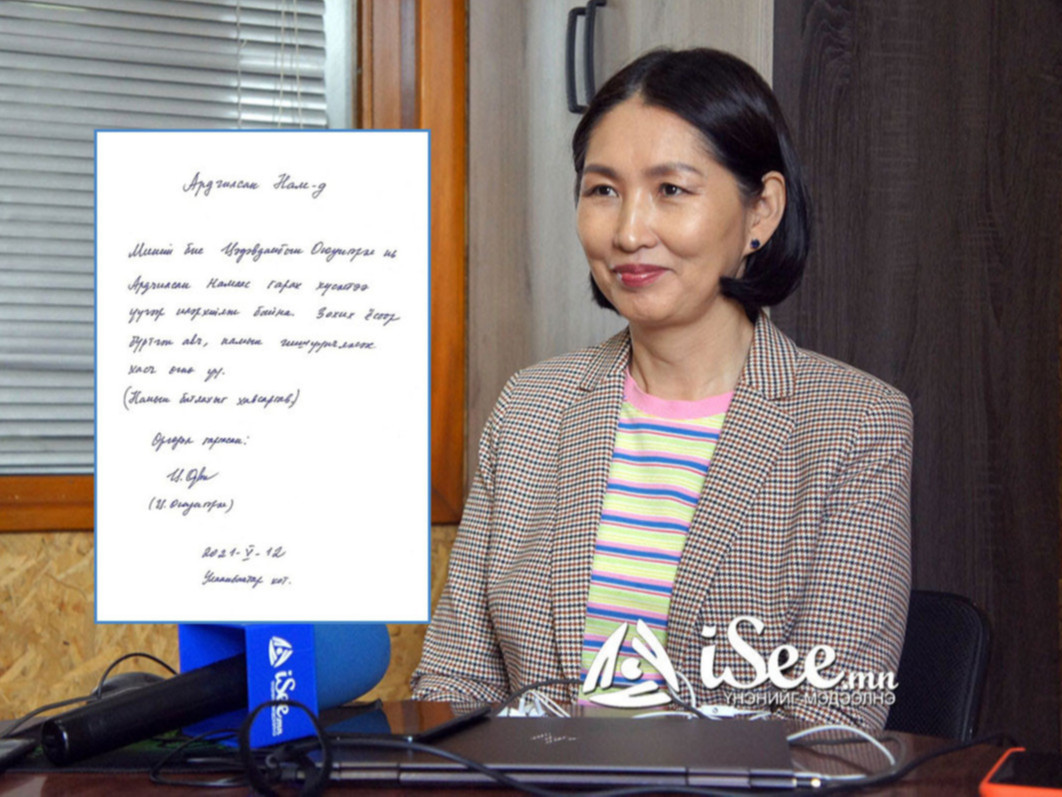 Ардчилсан Нам-д
Миний бие Цэдэвдамбын Оюунгэрэл нь
Ардчилсан Намаас гарах хүсэлтээ
үүгээр илэрхийлж байна. Зохих ёсоор
бүртгэн авч, намын гишүүнчлэлээс
хасч өгнө үү.
(Намын батлахыг хавсаргав)
Өргөдөл гаргасан:
Ц.Оюун
(Ц.Оюунгэрэл)
2021-V-12
Улаанбаатар хот.
iSee.mn
iSee.mn
ҮНЭНИЙГ МЭДЭЭЛНЭ